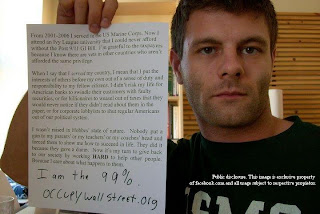 From 2001-2006 I served in the US Marine Corps. Now I
attend an Ivy League university that I could never afford
without the Post 9/11 GI Bill. I'm grateful to the taxpayers
because I know there are vets in other countries who aren't
afforded the same privilege.
When I say that I served my country, I mean that I put the
interests of others before my own out of a sense of duty and
responsibility to my fellow citizens. I didn't risk my life for
American banks to swindle their customers with faulty
securities, or for billionaires to weasel out of taxes that they
would never notice if they didn't read about them in the
paper, or for corporate lobbyists to shut regular Americans
out of our political system.
I wasn't raised in Hobbes' state of nature. Nobody put a
gun to my parents' or my teachers' or my coaches' head and
forced them to show me how to succeed in life. They did it
because they gave a damn. Now it's my turn to give back
to our society by working HARD to help other people.
Because I care about what happens to them.
I am the 99%.
occupywallstreet.org
Public disclosure. This image is exclusive property
of facebook.com and all usage subject to respective proprietor.